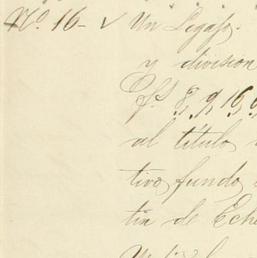 No. 16 - ✓ Un Legajo.
y division
fs. 8, 9, 16,
al titulo
tivo, fundo
tin de Eche